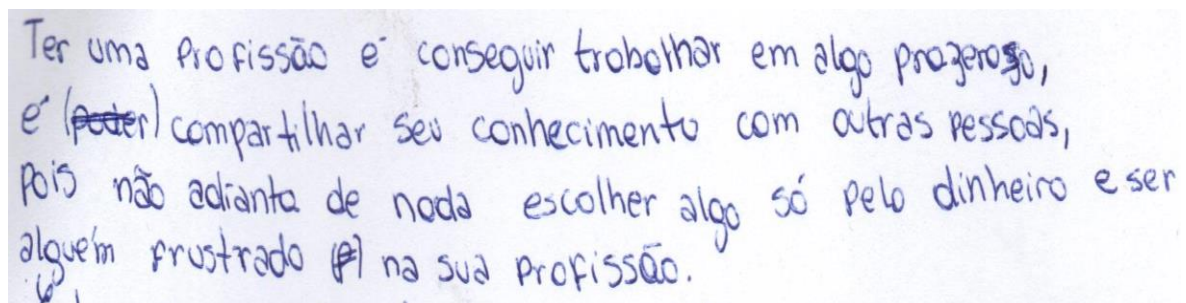 Ter uma profissão é conseguir trabalhar em algo prazeroso,
é (poder) compartilhar seu conhecimento com outras pessoas,
pois não adianta de nada escolher algo só pelo dinheiro e ser
alguém frustrado (p) na sua profissão.